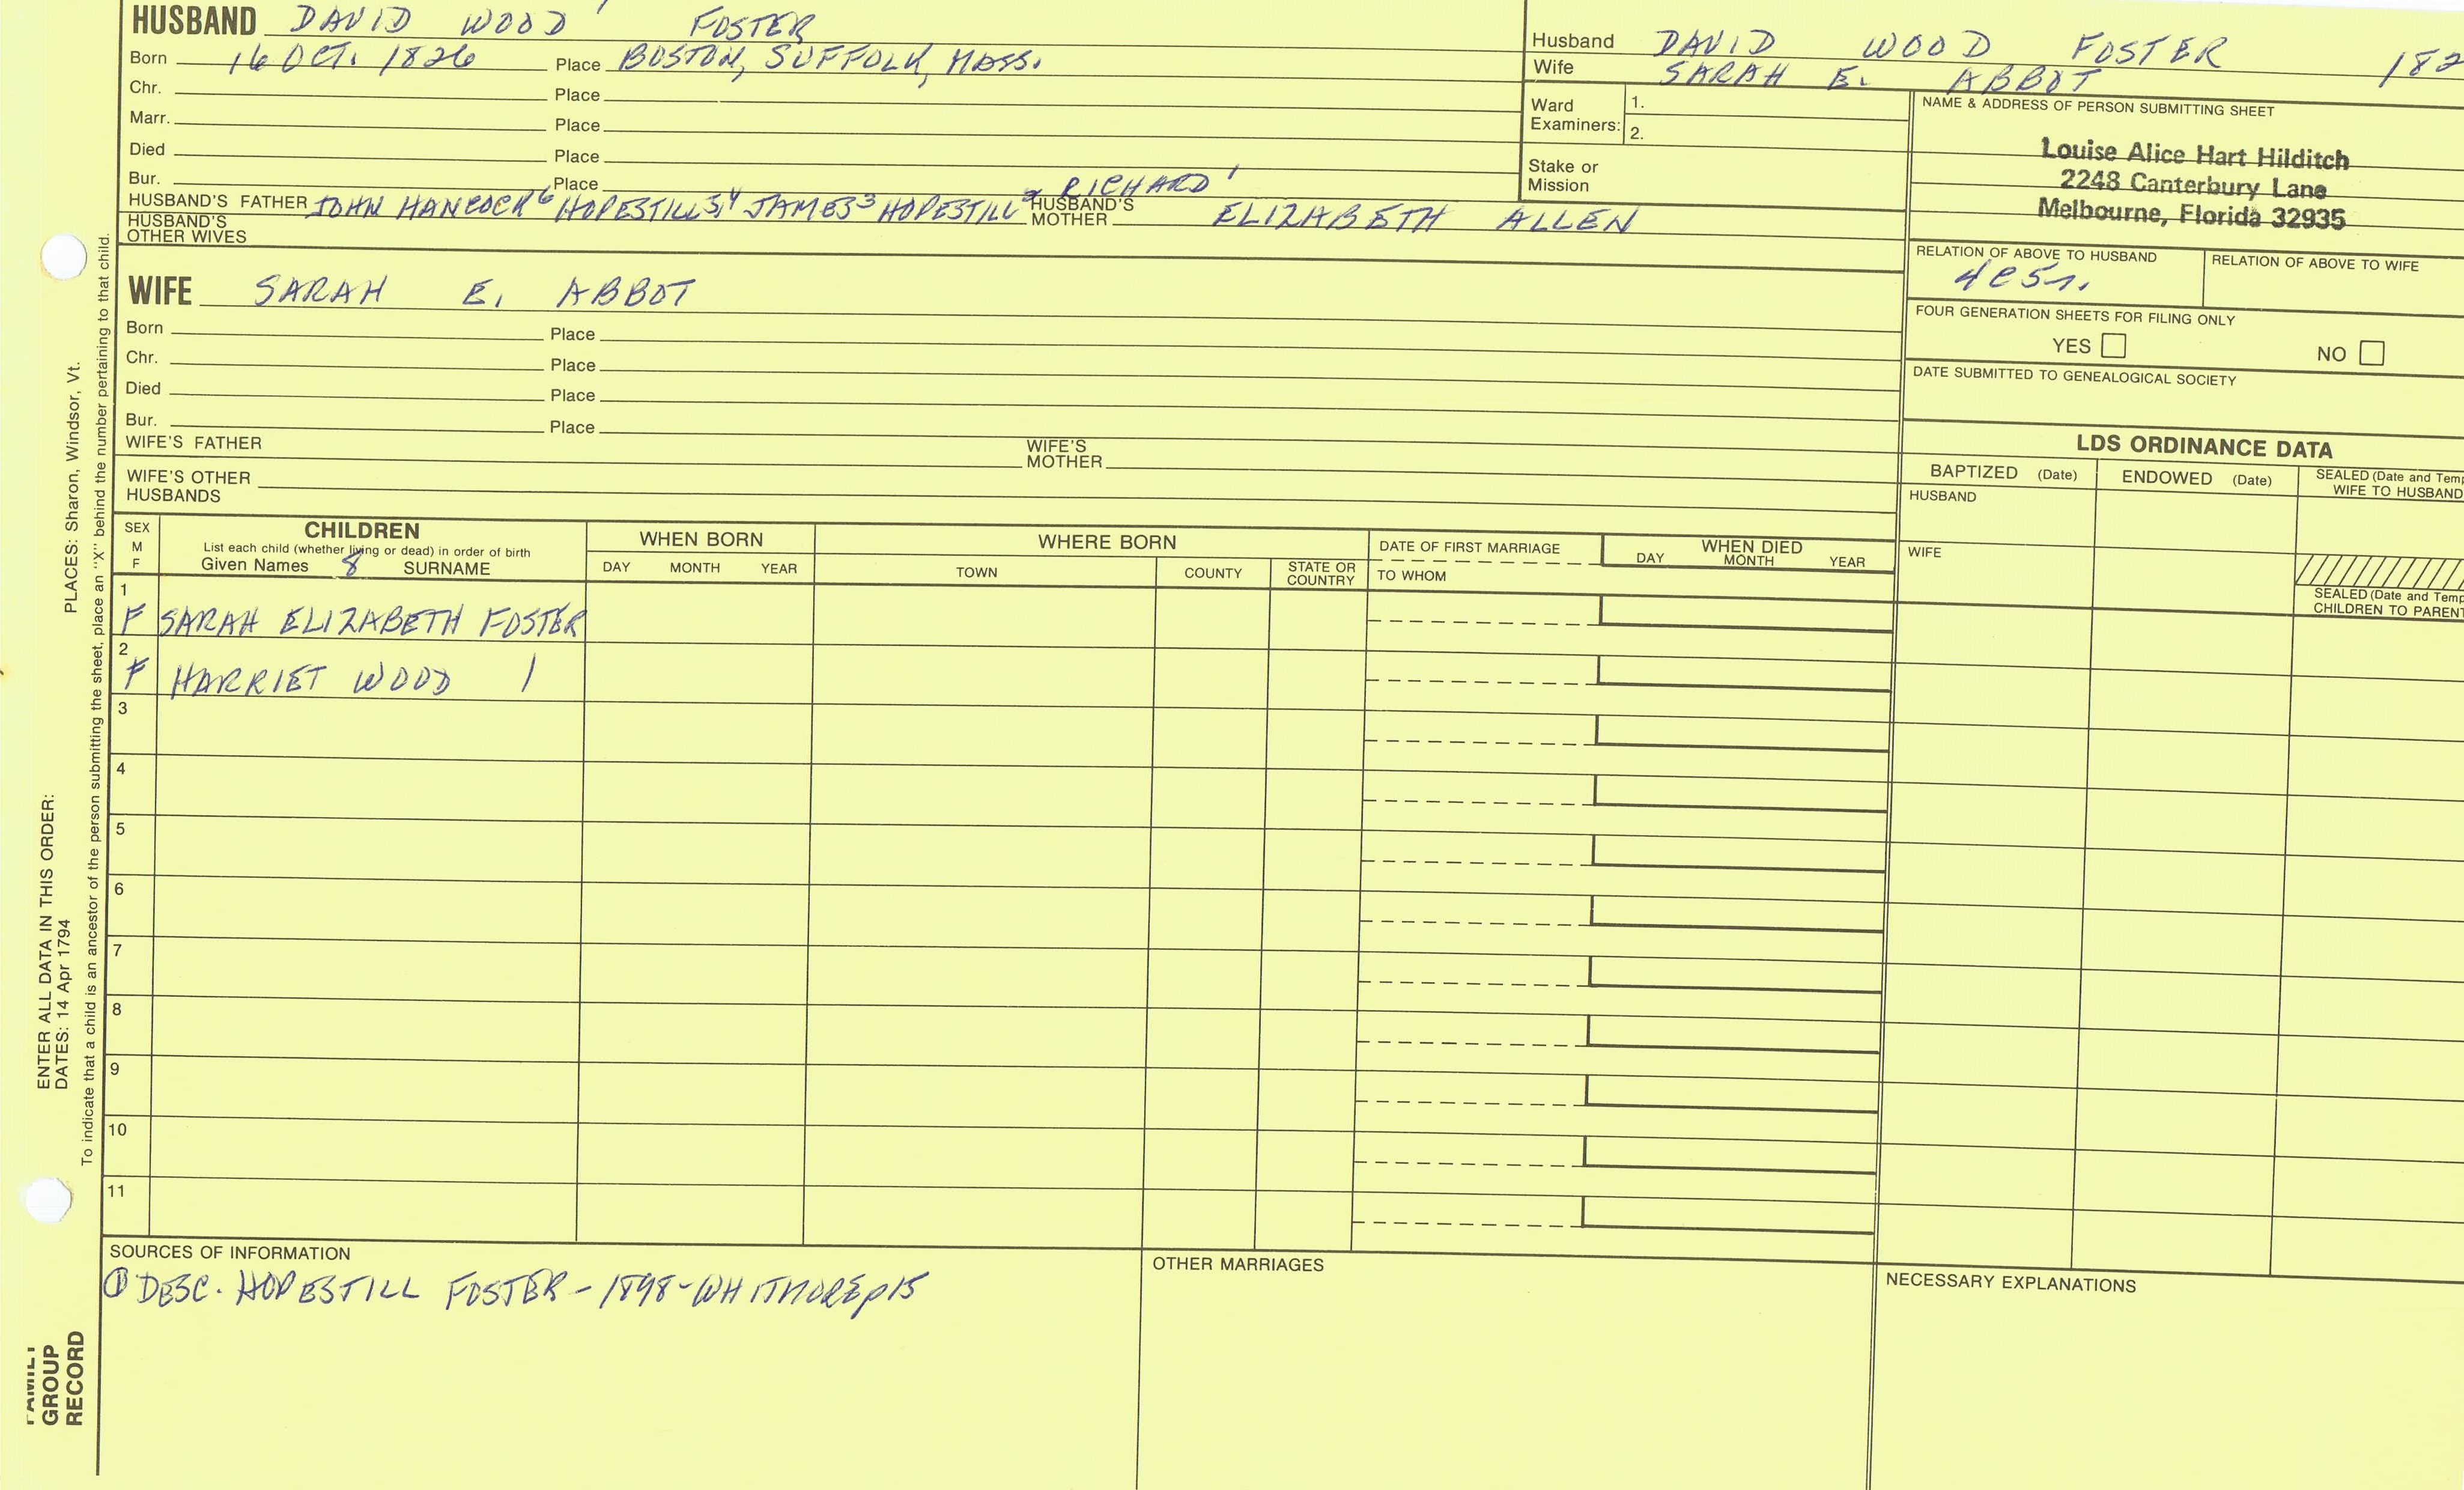 HUSBAND DAVID WOOD FOSTER
Born 16 OCT. 1826 Place BOSTON, SUFFOLK, MASS.
Chr. Place
Marr. Place
Died Place
Bur. Place
HUSBAND'S FATHER JOHN HANCOCK6 HOPESTILL5,4 JAMES3 HOPESTILL2 RICHARD1 HUSBAND'S MOTHER ELIZABETH ALLEN
HUSBAND'S OTHER WIVES
WIFE SARAH E. ABBOT
Born Place
Chr. Place
Died Place
Bur. Place
WIFE'S FATHER WIFE'S MOTHER
WIFE'S OTHER HUSBANDS
Husband DAVID WOOD FOSTER 182
Wife SARAH E. ABBOT
Ward Examiners: 1.
2.
Stake or Mission
NAME & ADDRESS OF PERSON SUBMITTING SHEET
Louise Alice Hart Hilditch
2248 Canterbury Lane
Melbourne, Florida 32935
RELATION OF ABOVE TO HUSBAND RELATION OF ABOVE TO WIFE
FOUR GENERATION SHEETS FOR FILING ONLY
YES NO
DATE SUBMITTED TO GENEALOGICAL SOCIETY
LDS ORDINANCE DATA
BAPTIZED (Date) ENDOWED (Date) SEALED (Date and Temp
WIFE TO HUSBAND
HUSBAND
WIFE
SEALED (Date and Temp
CHILDREN TO PARENT
SEX M F CHILDREN WHEN BORN WHERE BORN DATE OF FIRST MARRIAGE WHEN DIED
List each child (whether living or dead) in order of birth
Given Names 8 SURNAME DAY MONTH YEAR TOWN COUNTY STATE OR COUNTRY TO WHOM DAY MONTH YEAR
1
F SARAH ELIZABETH FOSTER
2
F HARRIET WOOD
3
4
5
6
7
8
9
10
11
SOURCES OF INFORMATION
① DESC. HOPESTILL FOSTER - 1898 - WHITMORE p15
OTHER MARRIAGES
NECESSARY EXPLANATIONS
ENTER ALL DATA IN THIS ORDER: PLACES: Sharon, Windsor, Vt.
DATES: 14 Apr 1794
To indicate that a child is an ancestor of the person submitting the sheet, place an "X" behind the number pertaining to that child.
FAMILY
GROUP
RECORD